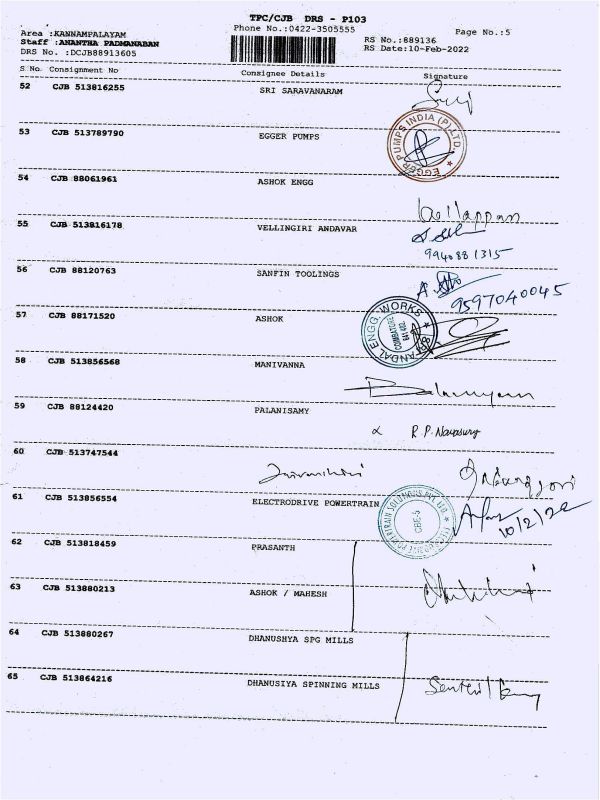 TPC/CJB DRS - P103
Phone No.:0422-3505555
Area :KANNAMPALAYAM
Staff :ANANTHA PADMANABAN
DRS No. :DCJB88913605
RS No.:889136
RS Date:10-Feb-2022
Page No.:5
S No. Consignment No Consignee Details Signature
52 CJB 513816255 SRI SARAVANARAM
53 CJB 513789790 EGGER PUMPS
EGGER PUMPS INDIA (P) LTD.
54 CJB 88061961 ASHOK ENGG
55 CJB 513816178 VELLINGIRI ANDAVAR
9940881315
56 CJB 88120763 SANFIN TOOLINGS
9597040045
57 CJB 88171520 ASHOK
ANDAL ENGG. WORKS
COIMBATORE
58 CJB 513856568 MANIVANNA
59 CJB 88124420 PALANISAMY
60 CJB-513747544
61 CJB 513856554 ELECTRODRIVE POWERTRAIN
CBE-5
10/2/22
62 CJB 513818459 PRASANTH
63 CJB 513880213 ASHOK / MAHESH
64 CJB 513880267 DHANUSHYA SPG MILLS
65 CJB 513864216 DHANUSIYA SPINNING MILLS